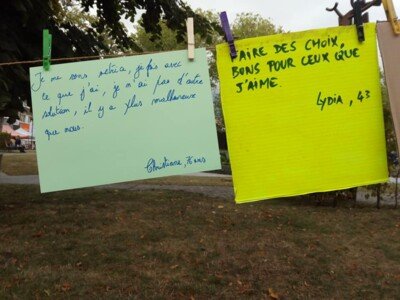 Je me sens rétréci, je fais avec
ce que j'ai, je n'ai pas d'autre
solution, il y a plus malheureux
que nous.
Christiane, ans
FAIRE DES CHOIX,
BONS POUR CEUX QUE
J'AIME.
LYDIA, 43